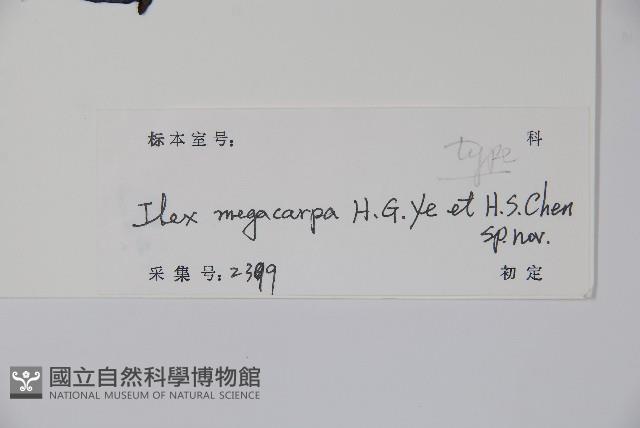 标本室号: 科
type
Ilex megacarpa H.G.Ye et H.S.Chen
sp.nov.
采集号: 初定
國立自然科學博物館
NATIONAL MUSEUM OF NATURAL SCIENCE